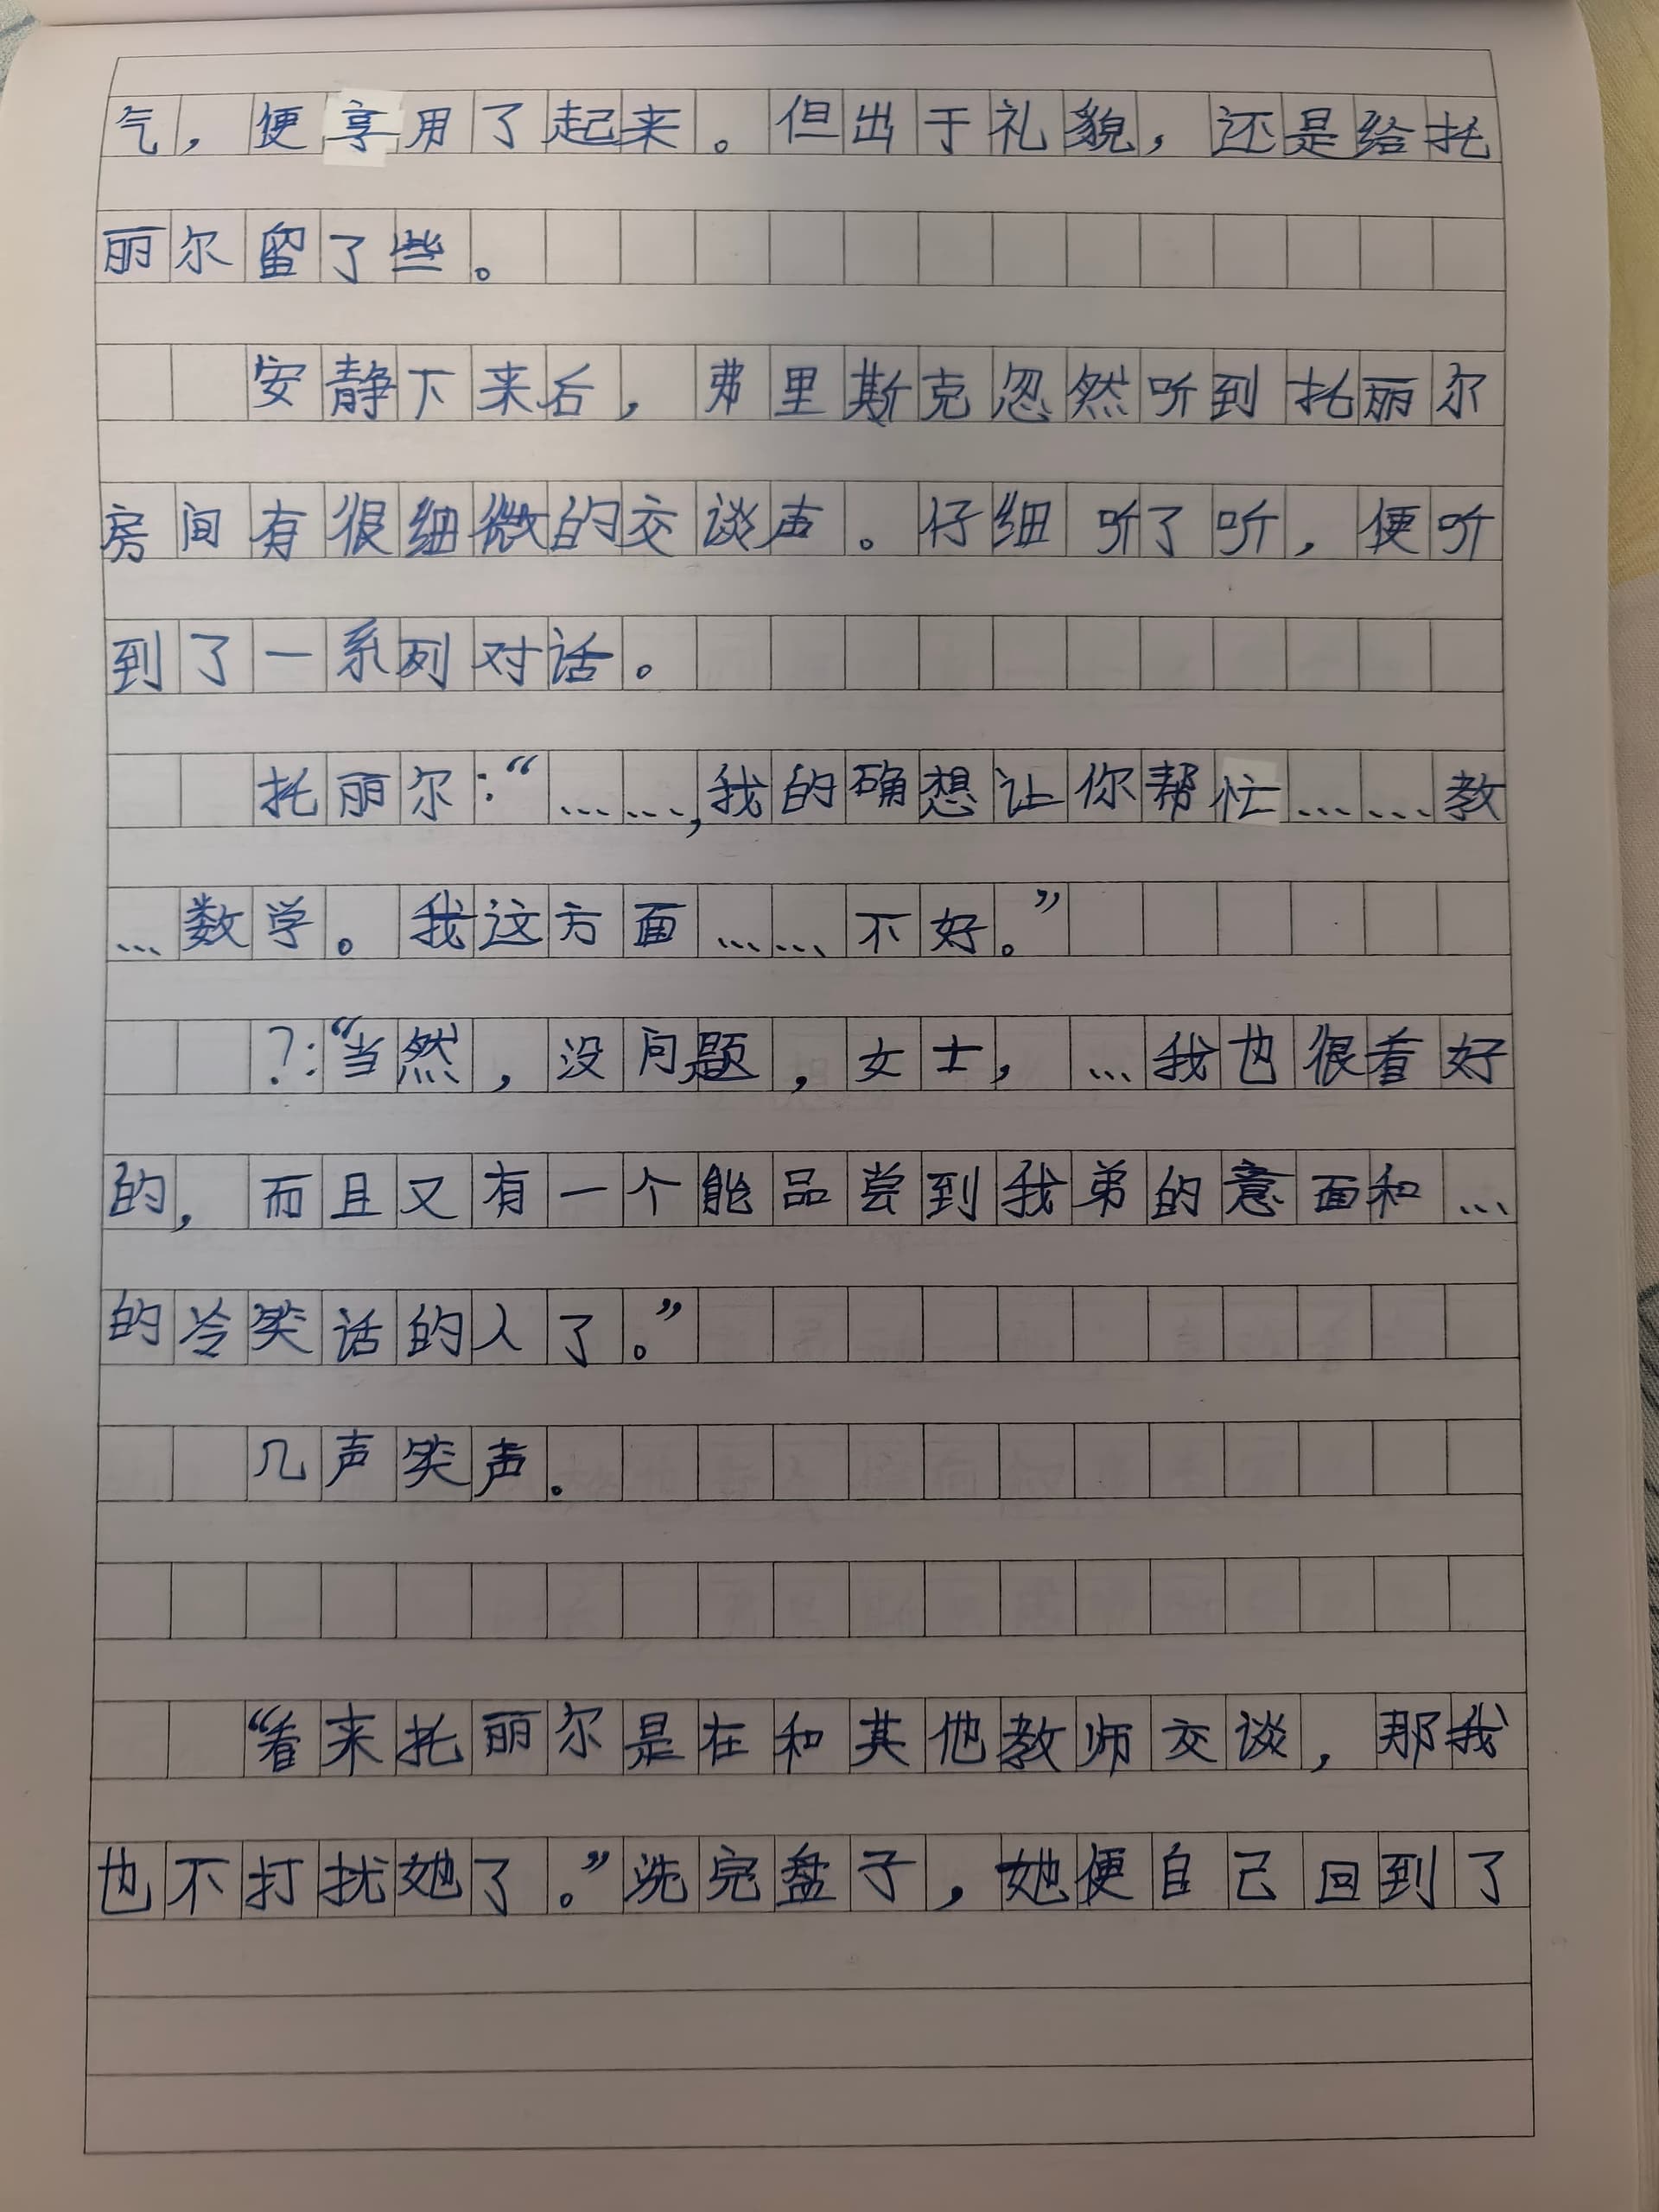 气，便享用了起来。但出于礼貌，还是给托
丽尔留了些。
安静下来后，弗里斯克忽然听到托丽尔
房间有很细微的交谈声。仔细听了听，便听
到了一系列对话。
托丽尔：“……，我的确想让你帮忙……教
…数学。我这方面……不好。”
？：“当然，没问题，女士，…我也很看好
的，而且又有一个能品尝到我弟的意面和…
的冷笑话的人了。”
几声笑声。
“看来托丽尔是在和其他教师交谈，那我
也不打扰她了。”洗完盘子，她便自己回到了